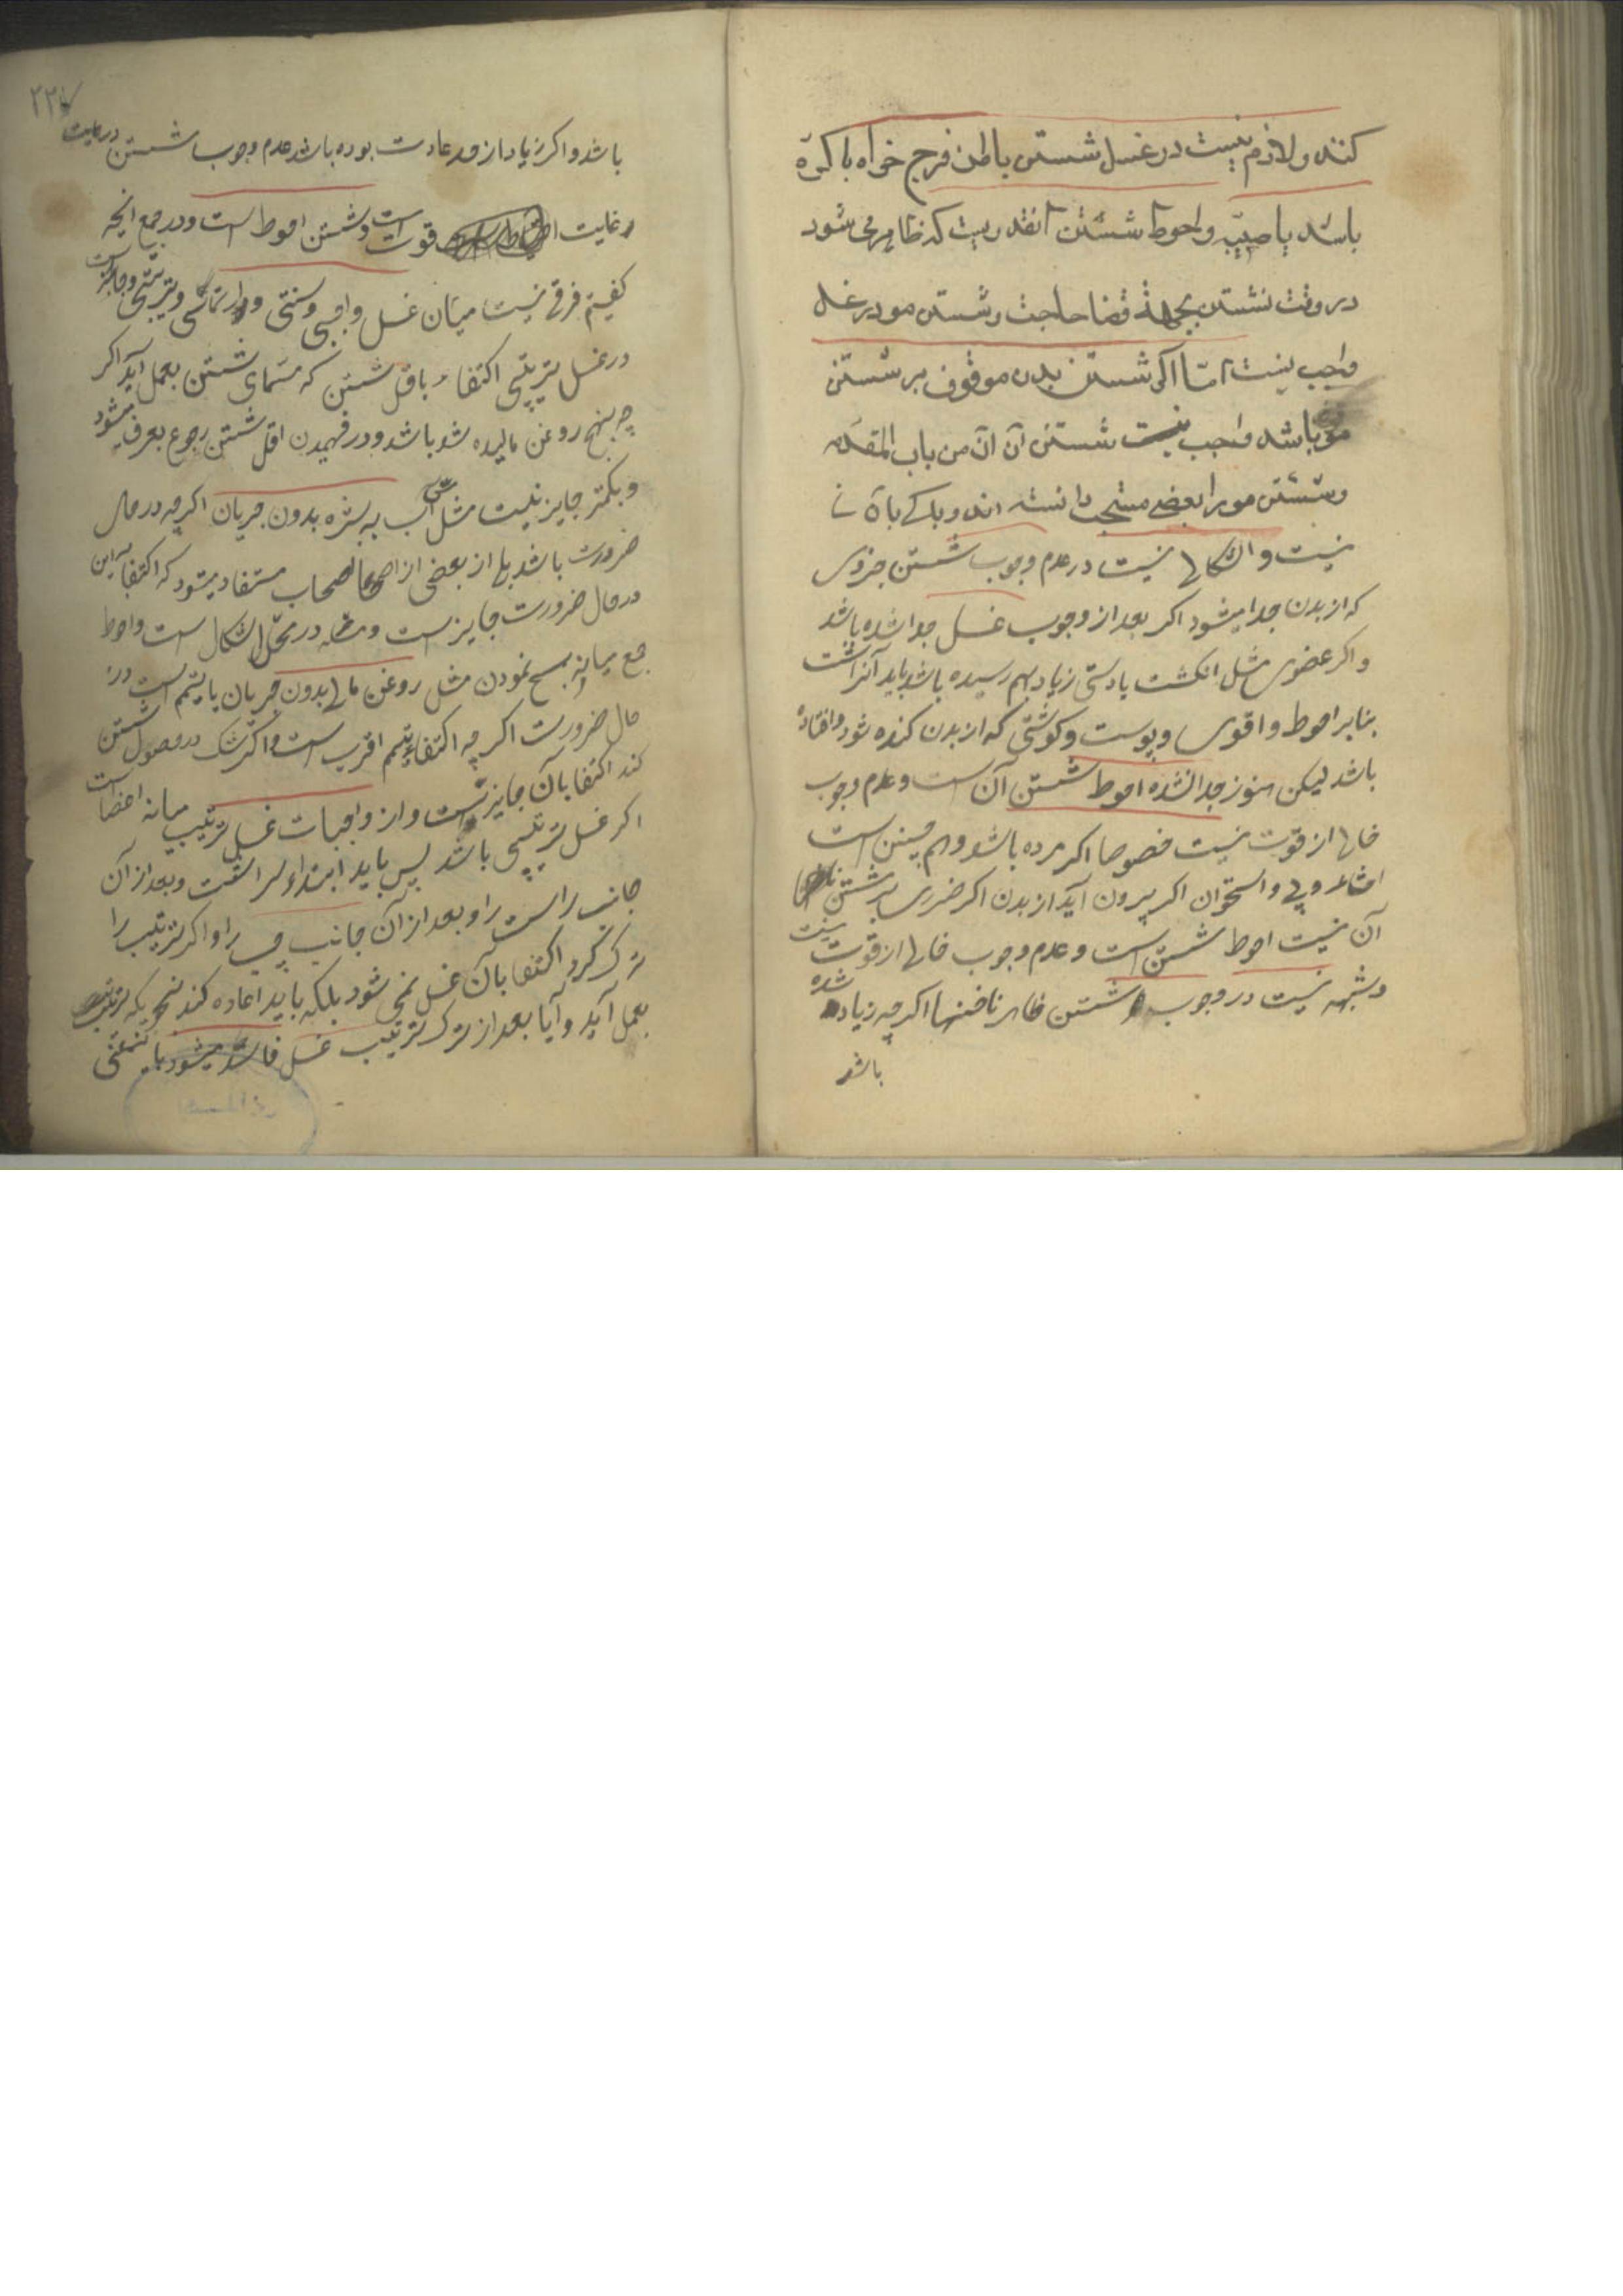 کنند ولازم نیست در غسل شستن باطن فرج خواه باکره
باشد یا صیبّه واحوط شستن آنقدریست که ظاهر می شود
در وقت نشستن بجهة قضا حاجت وشستن مو در غسل
واجب نیست امّا اکر شستن بدن موقوف بر شستن
مو باشد واجب نیست شستن آن آن من باب المقدمه
وشستن مو را بعضے مستحب دانسته اند وباکے بان
نیست واشکالی نیست در عدم وجوب شستن جزوی
که از بدن جدا میشود اکر بعد از وجوب غسل جدا شده باشد
واکر عضوی مثل انکشت یا دستی زیاد بهم رسیده باشد باید آنرا شست
بنابر احوط واقوی وپوست وکوشتی که از بدن کنده شود وافتاده
باشد لیکن هنوز جدا نشده احوط شستن آن است وعدم وجوب
خالی از قوت نیست خصوصا اکر مرده باشد وهم چنین است
امثاء وپی واستخوان اکر بیرون آید از بدن اکر ضرری بر شستن
آن نیست احوط شستن است وعدم وجوب خالی از قوت نیست
وشبهه نیست در وجوب شستن ظاهر ناخنها اکر چه زیاد شده
باشد
۲۲۷
باشد واکر زیاد از قدر عادت بوده باشد عدم وجوب شستن در غایت
در غایت قوت است وشستن احوط است ودر جمع انچه
کفتیم فرقے نیست میان غسل واجبی وسنتی وارتماسی وترتیبی وجایز است
در غسل ترتیبی اکتفاء باقل شستن که مسمای شستن بعمل آید اکر
چه بنهج روغن مالیده شد باشد ودر فهمیدن اقل شستن رجوع بعرف میشود
وبکمتر جایز نیست مثل مس آب به بشره بدون جریان اکر چه در حال
ضرورت باشد بلی از بعضی از اصحاب مستفاد میشود که اکتفا باین
در حال ضرورت جایز است ومسئله در محل اشکال است واحوط
جمع میانه مسح نمودن مثل روغن مالی بدون جریان با تیمم است در
حال ضرورت اکر چه اکتفاء بتیمم اقرب است واکر شک در حصول شستن
کند اکتفا بان جایز نیست واز واجبات غسل ترتیب میانه اعضا است
اکر غسل ترتیبی باشد پس باید ابتداء سر را شست وبعد از آن
جانب راست را وبعد از آن جانب چپ را واکر ترتیب را
ترک کرد اکتفا بان غسل نمی شود بلکه باید اعاده کند بنحویکه ترتیب
بعمل آید وآیا بعد از ترک ترتیب غسل فاسد میشود باینمعنی